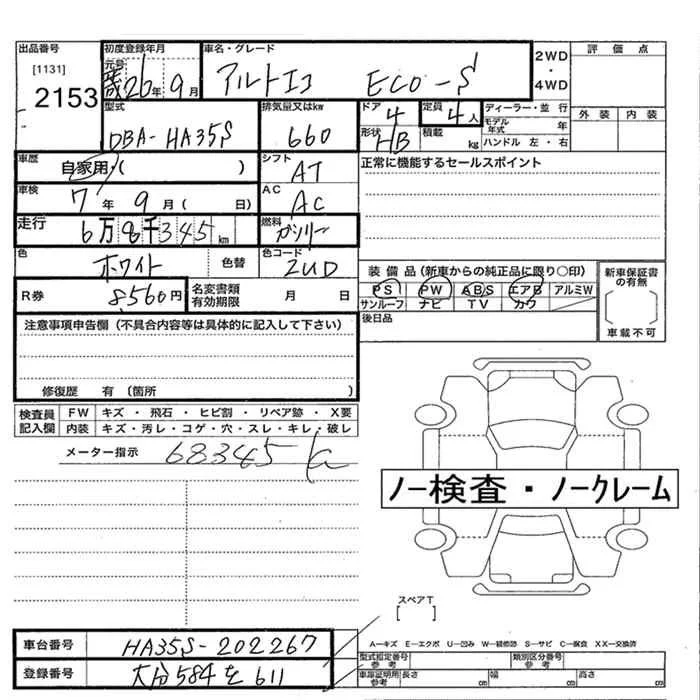 出品番号 初度登録年月 車名・グレード 2WD・4WD 評価点
[1131] 元号
2153 26年 9月 アルトエコ ECO-S
型式 排気量又はkw ドア 定員 ディーラー・並行 外装 内装
DBA-HA35S 660 4 4人 モデル年式 年
形状 HB 積載 kg ハンドル 左・右
車歴 自家用・( ) シフト AT 正常に機能するセールスポイント
車検 7年 9月 ( 日) AC AC
走行 6万8千345km 燃料 ガソリン
色 ホワイト 色替 色コード ZUD 装備品(新車からの純正品に限り○印) 新車保証書の有無
R券 8560円 名変書類有効期限 月 日 PS PW ABS エアB アルミW
サンルーフ ナビ TV カワ
後日品 車載不可
注意事項申告欄(不具合内容等は具体的に記入して下さい)
修復歴 有 (箇所 )
検査員記入欄 FW キズ・飛石・ヒビ割・リペア跡・X要
内装 キズ・汚レ・コゲ・穴・スレ・キレ・破レ
メーター指示 68345
ノー検査・ノークレーム
スペアT
[ ]
車台番号 HA35S-202267 A-キズ E-エクボ U-凹み W-補修跡 S-サビ C-腐食 XX-交換済
登録番号 大分584を611 型式指定番号参考 類別区分番号参考
車庫証明用参考 長さ cm 幅 cm 高さ cm